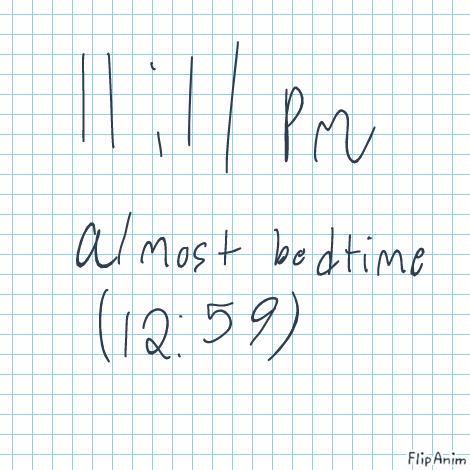 11:11 pm
almost bedtime
(12:59)
FlipAnim